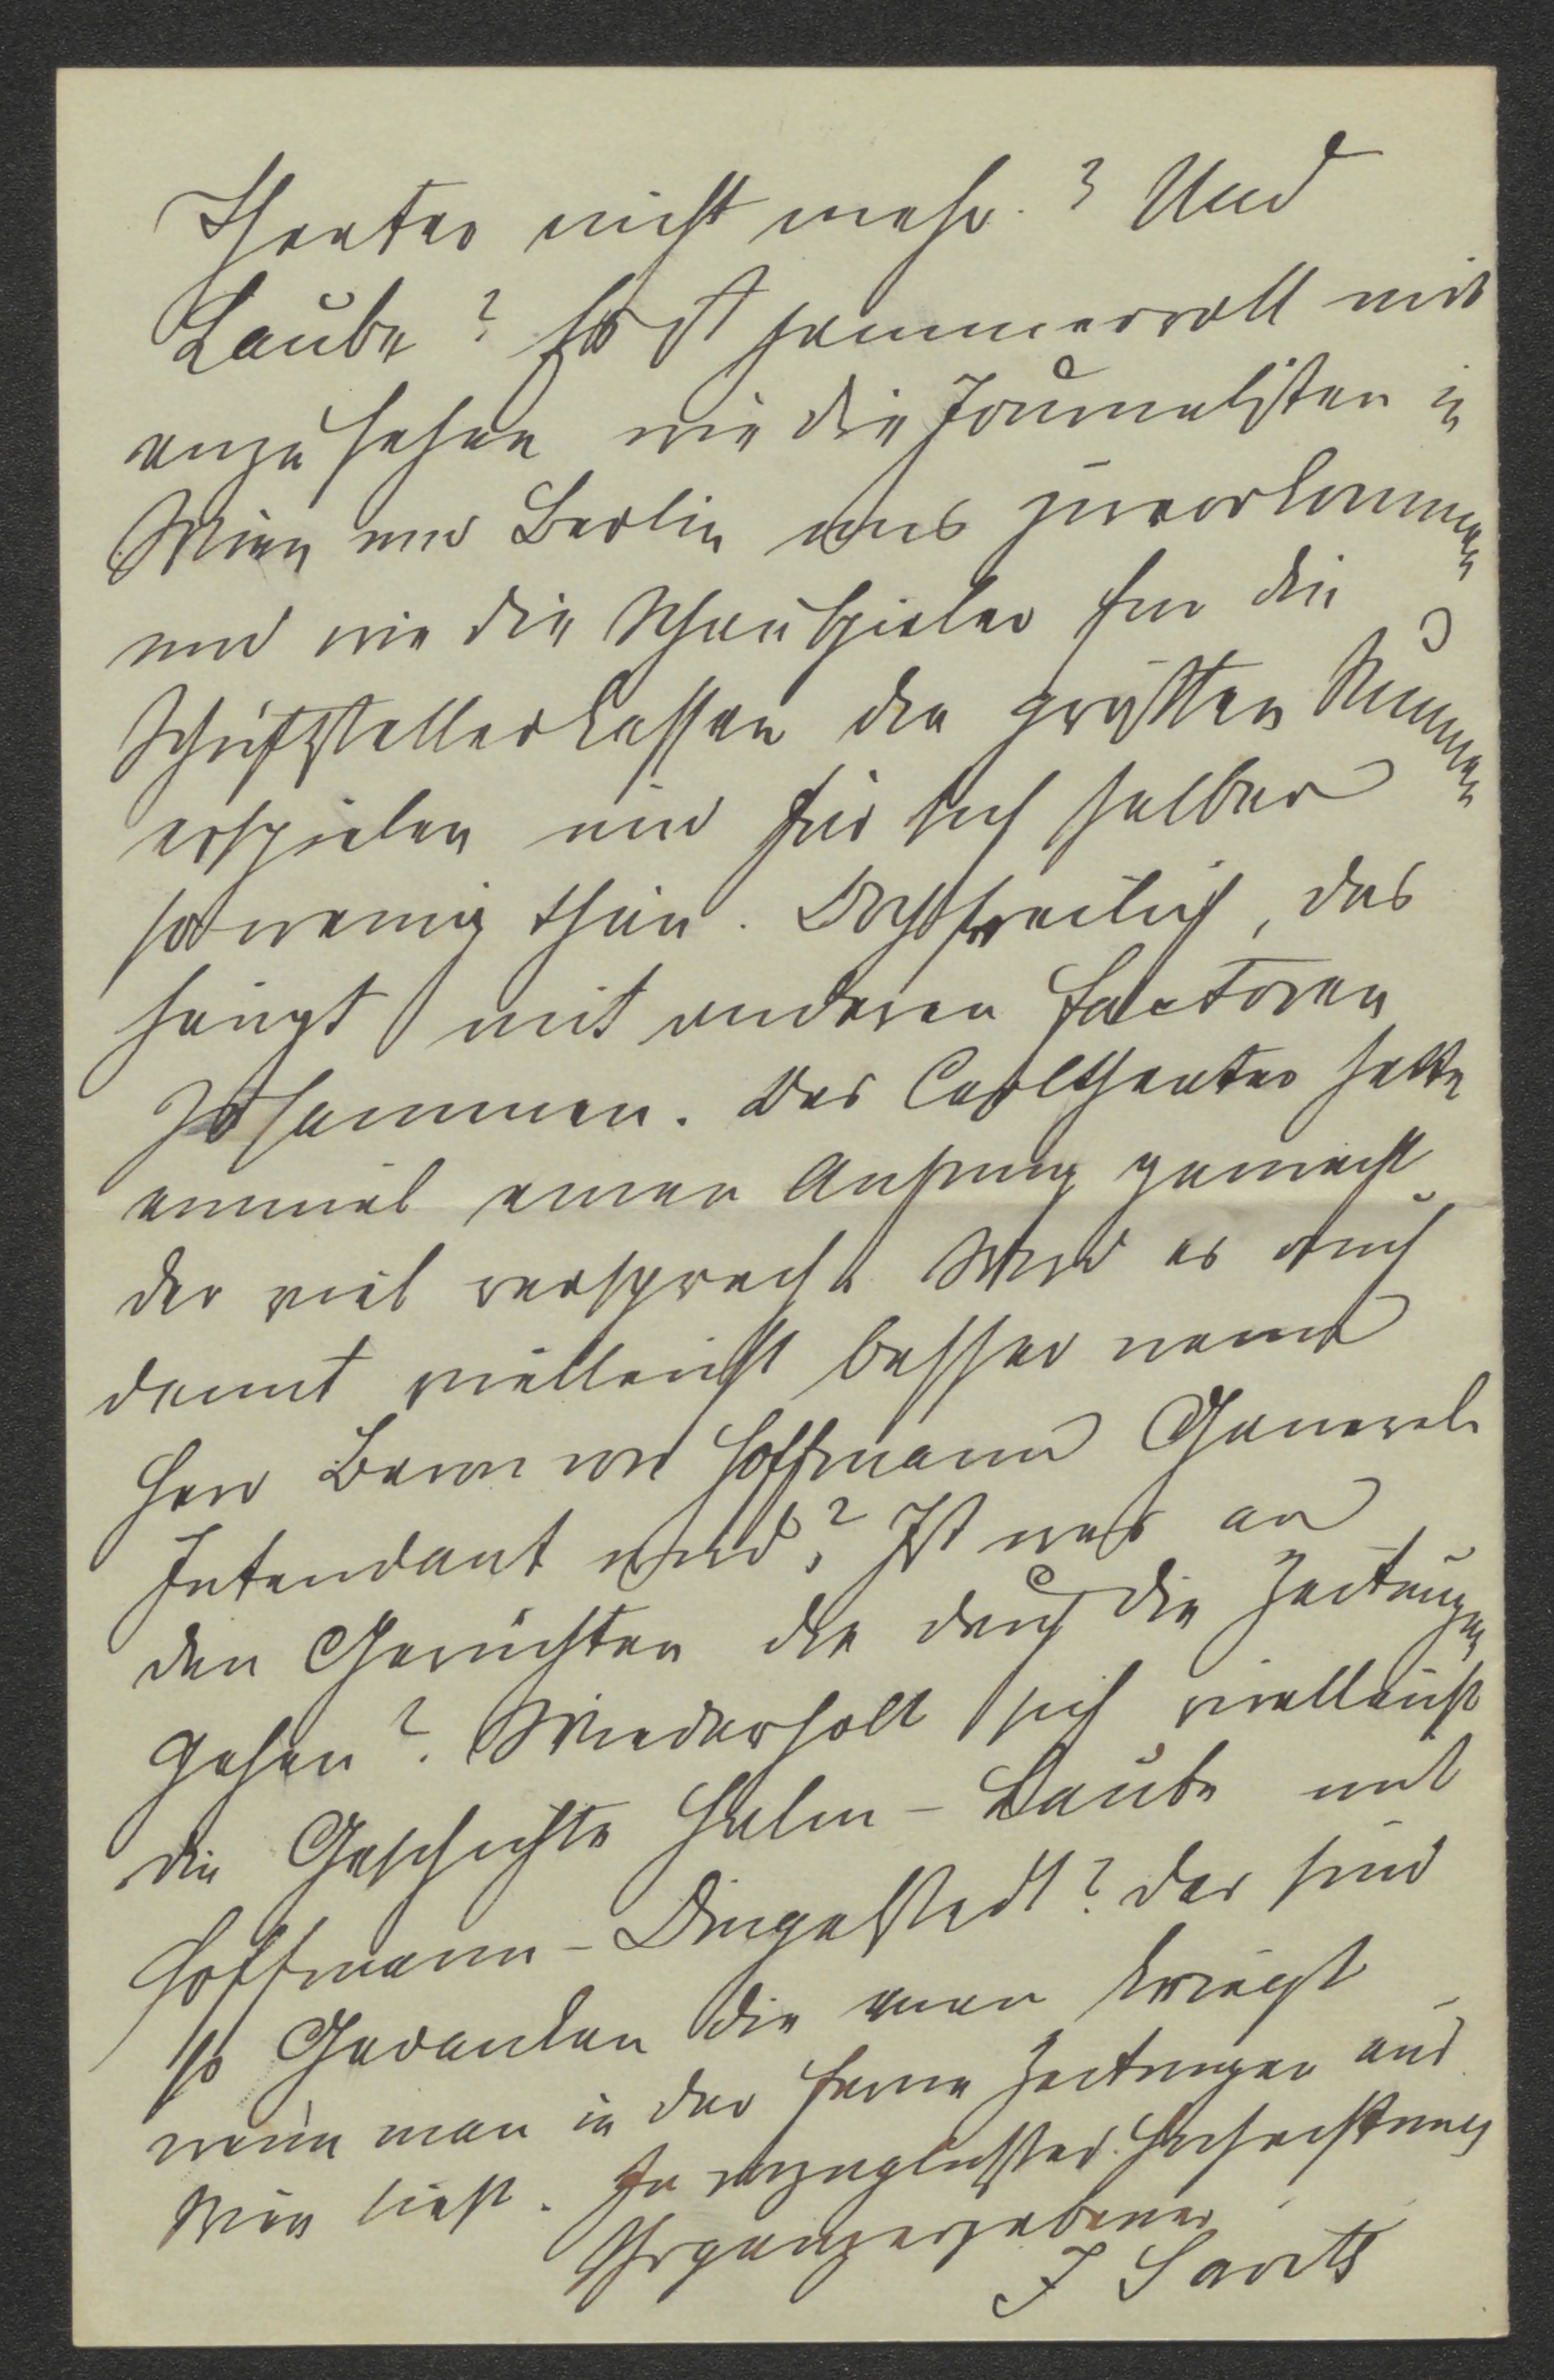 Theater nicht mehr? Und
Laube? Es ist jammervoll mit
anzusehen wie die Journalisten in
Wien und Berlin uns zuvorkommen
und wie die Schauspieler für die
Schriftstellerkassen die größten Summen
erspielen und für sich selber
so wenig thun. Doch freilich, das
hängt mit anderen Factoren
zusammen. Das Carltheater hatte
einmal einen Anfang gemacht
der viel versprach. Wird es auch
damit vielleicht besser wenn
Herr Baron von Hoffmann General-
Intendant wird? Ist was an
den Gerüchten die durch die Zeitungen
gehen? Wiederholt sich vielleicht
die Geschichte Halm-Laube mit
Hoffmann-Dingelstedt? Das sind
so Gedanken die man kriegt
wenn man in der Ferne Zeitungen aus
Wien liest. In vorzüglichster Hochachtung
Ihr ganz ergebener
J Savits